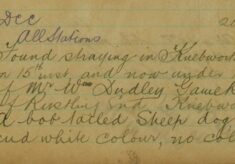 DCC 20
All Stations
Found straying in Knebworth
on 15th inst, and now under
of Mr Wm Dudley Game K
of Knebw
a bob tailed Sheep dog
and white colour, no col